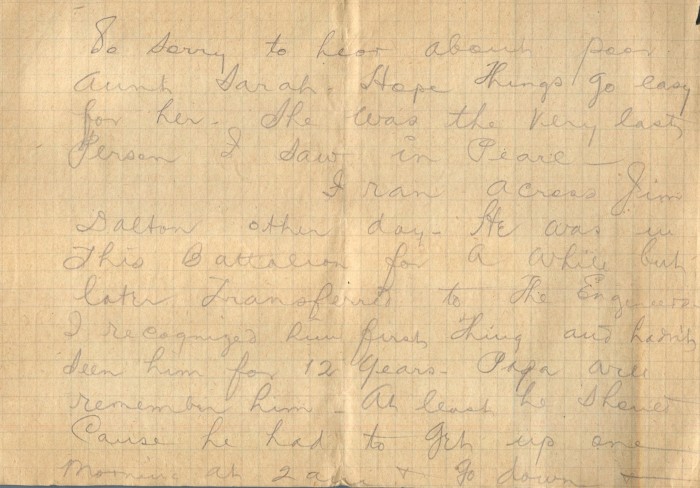 So sorry to hear about poor
Aunt Sarah. Hope Things go easy
for her. She was the very last
Person I saw in Pearl —
I ran across Jim
Dalton other day. He was in
This Battalion for a while but
later Transferred to The Engineers
I recognized him first Thing and hadn't
seen him for 12 years. Papa
remember him. At least he
Cause he had to get up one
Morning at 2 am + go down